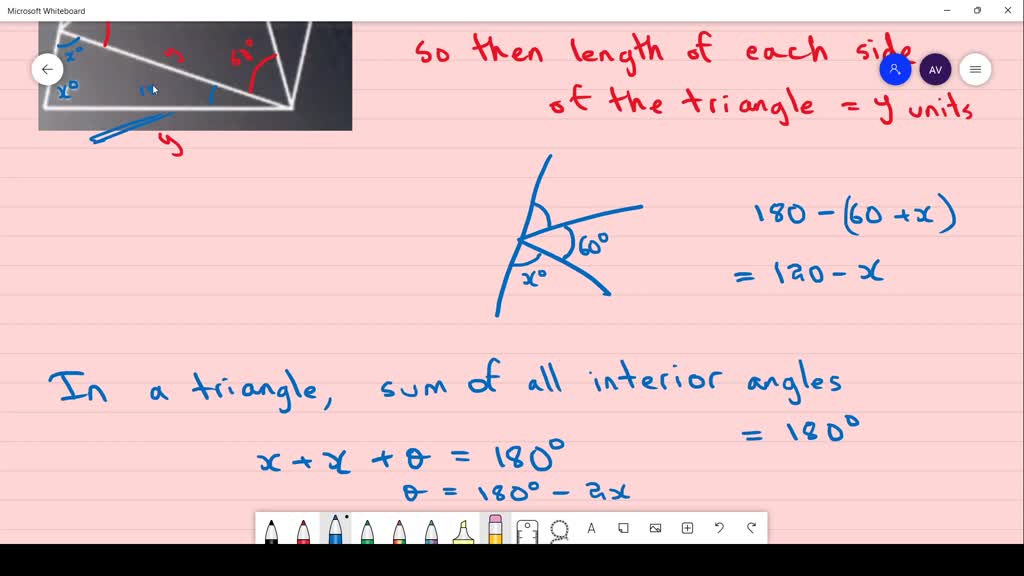 Microsoft Whiteboard
x°
y
60°
so then length of each side
x°
AV
of the triangle = y units
y
180 - (60 + x)
60°
x°
= 120 - x
In a triangle, sum of all interior angles
= 180°
x + x + θ = 180°
θ = 180° - 2x
A